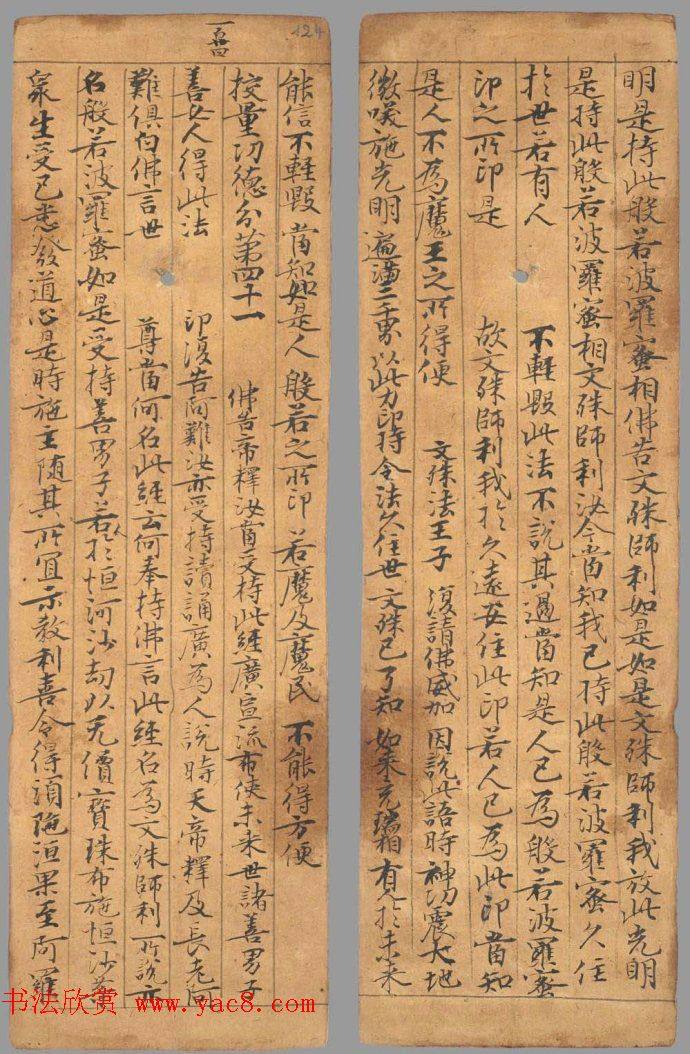 明是持此般若波羅蜜相佛告文殊師利如是如是文殊師利我放此光明
是持此般若波羅蜜相文殊師利汝今當知我已持此般若波羅蜜久住
於世若有人 不輕毀此法不說其過當知是人已為般若波羅蜜
印之所印是 故文殊師利我於久遠安住此印若人已為此印當知
是人不為魔王之所得便 文殊法王子 復請佛威加 因說此語時 神功震大地
微咲施光明 遍滿三千界 以此力印持 令法久住世 文殊已了知 如來充瑞相 有人於未來
一百廿四
124
能信不輕毀 當知如是人 般若之所印 若魔及魔民 不能得方便
挍量功德分第四十一 佛告帝釋汝當受持此經廣宣流布使未來世諸善男子
善女人得此法 印復告阿難汝亦受持讀誦廣為人說時天帝釋及長老阿
難俱白佛言世 尊當何名此經云何奉持佛言此經名為文殊師利所說亦
名般若波羅蜜如是受持善男子若於恒河沙劫以无價寶珠布施恒沙等
衆生受已悉發道心是時施主隨其所宜示教利喜令得須陁洹果至阿羅
书法欣赏 www.yac8.com